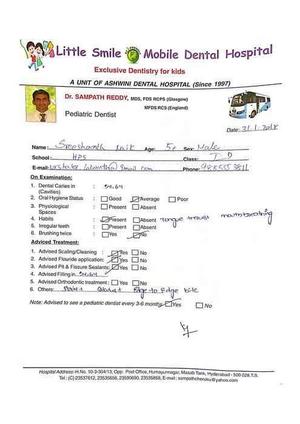 Little Smile Mobile Dental Hospital
Exclusive Dentistry for kids
A UNIT OF ASHWINI DENTAL HOSPITAL (Since 1997)
Dr. SAMPATH REDDY, MDS, FDS RCPS (Glasgow)
MFDS RCS (England)
Pediatric Dentist
Date: 31/1/2018
Name: Age: Sex: Male
School: HPS Class:
E-mail: Phone:
On Examination:
1. Dental Caries in : 54,64
(Cavities)
2. Oral Hygiene Status : Good Average Poor
3. Physiological : Present Absent
Spaces
4. Habits : Present Absent tongue thrust mouth breathing
5. Irregular teeth : Present Absent
6. Brushing twice : Yes No
Advised Treatment:
1. Advised Scaling/Cleaning : Yes No
2. Advised Flouride application : Yes No
3. Advised Pit & Fissure Sealants : Yes No
4. Advised Filling in : 54,64
5. Advised Orthodontic treatment : Yes No
6. Others: Edge to Edge bite
Note: Advised to see a pediatric dentist every 3-6 months Yes No
Hospital Address: H.No. 10-2-304/13, Opp. Post Office, Humayunnagar, Masab Tank, Hyderabad - 500 028.T.S.
Tel.: (C)-23537612, 23535658, 23590690, 23535858, E-mail : sampathchenoku@yahoo.com